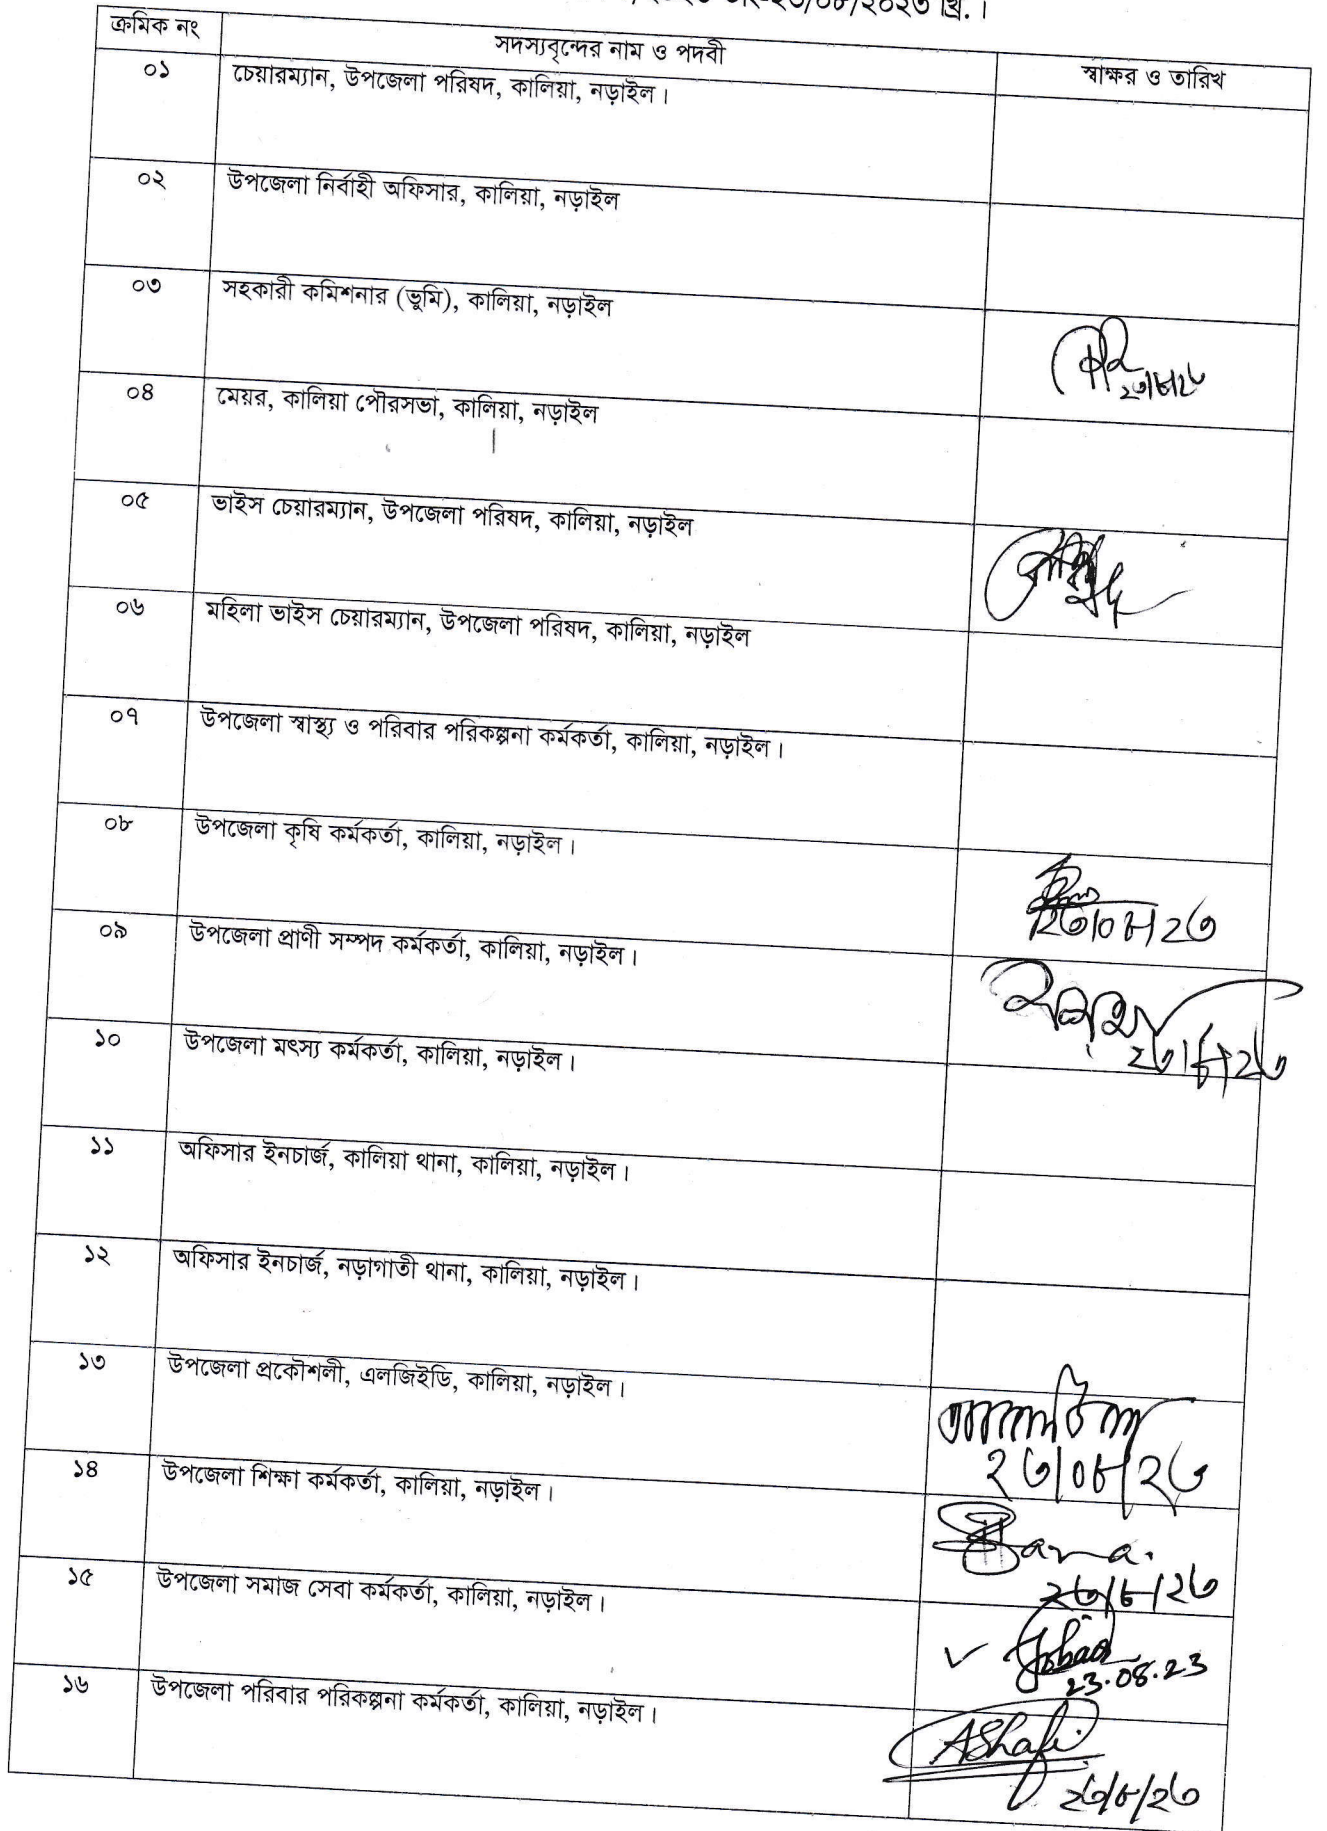 ২০২৩ তাং-২৩/০৮/২০২৩ খ্রি.।
ক্রমিক নং সদস্যবৃন্দের নাম ও পদবী স্বাক্ষর ও তারিখ
০১ চেয়ারম্যান, উপজেলা পরিষদ, কালিয়া, নড়াইল।
০২ উপজেলা নির্বাহী অফিসার, কালিয়া, নড়াইল
০৩ সহকারী কমিশনার (ভূমি), কালিয়া, নড়াইল
২৩/৮/২৩
০৪ মেয়র, কালিয়া পৌরসভা, কালিয়া, নড়াইল
০৫ ভাইস চেয়ারম্যান, উপজেলা পরিষদ, কালিয়া, নড়াইল
০৬ মহিলা ভাইস চেয়ারম্যান, উপজেলা পরিষদ, কালিয়া, নড়াইল
০৭ উপজেলা স্বাস্থ্য ও পরিবার পরিকল্পনা কর্মকর্তা, কালিয়া, নড়াইল।
০৮ উপজেলা কৃষি কর্মকর্তা, কালিয়া, নড়াইল।
২৩/০৮/২৩
০৯ উপজেলা প্রাণী সম্পদ কর্মকর্তা, কালিয়া, নড়াইল।
২৩/৮/২৩
১০ উপজেলা মৎস্য কর্মকর্তা, কালিয়া, নড়াইল।
১১ অফিসার ইনচার্জ, কালিয়া থানা, কালিয়া, নড়াইল।
১২ অফিসার ইনচার্জ, নড়াগাতী থানা, কালিয়া, নড়াইল।
১৩ উপজেলা প্রকৌশলী, এলজিইডি, কালিয়া, নড়াইল।
২৩/০৮/২৩
১৪ উপজেলা শিক্ষা কর্মকর্তা, কালিয়া, নড়াইল।
২৩/৮/২৩
১৫ উপজেলা সমাজ সেবা কর্মকর্তা, কালিয়া, নড়াইল।
23.08.23
১৬ উপজেলা পরিবার পরিকল্পনা কর্মকর্তা, কালিয়া, নড়াইল।
AShafi
২৩/৮/২৩